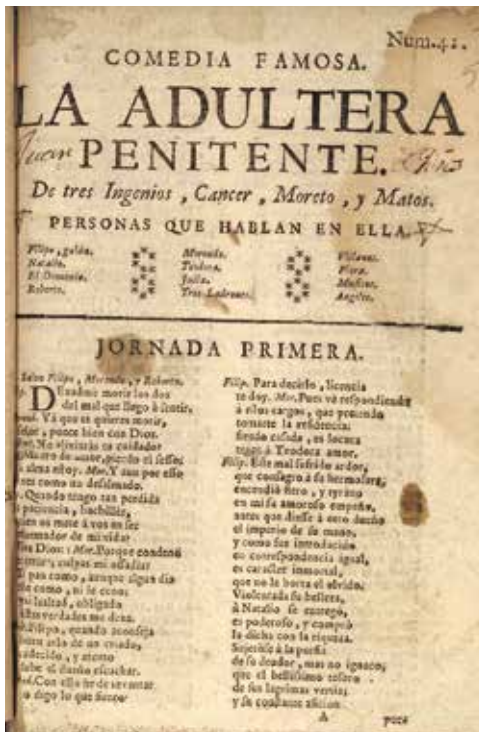 Num.41.
COMEDIA FAMOSA.
LA ADULTERA
PENITENTE.
De tres Ingenios, Cancer, Moreto, y Matos.
PERSONAS QUE HABLAN EN ELLA.
Filipo, galán. Morondo. Villanos.
Natalio. Teodora. Flora.
El Demonio. Julia. Musicos.
Roberto. Tres Ladrones. Angeles.
JORNADA PRIMERA.
Salen Filipo, Morondo, y Roberto.
DExadme morir los dos
del mal que llego à sentir.
Yà que te quieres morir,
ponte bien con Dios.
No aliviarás tu cuidado?
alma estoy. Mor. Y aun por esso
como un desalmado.
Quando tengo tan perdida
paciencia, bachiller,
mete à vos en ser
de mi vida?
Dios: Mor. Porque condenò
culpas mi ossadia?
pan como, aunque algun dia
como, ni le ceno:
lealtad, obligado
verdades me dexa.
Filipo, quando aconseja
de un criado,
y atento
debe el dueño escuchar.
Con esso he de levantar
digo lo que siento
Filip. Para decirlo, licencia
te doy. Mor. Pues và respondiendo
à estos cargos, que pretendo
tomarte la residencia:
siendo casada, es locura
tener à Teodora amor.
Filip. Este mal sufrido ardor,
que consagro à su hermosura,
encendiò fiero, y tyrano
en mi su amoroso empeño,
antes que diesse à otro dueño
el imperio de su mano,
y como fue introducido
en correspondencia igual,
es caracter inmortal,
que no le borra el olvido.
Violentada su belleza,
à Natalio se entregò,
es poderoso, y comprò
la dicha con la riqueza.
Sujetòse à la porfia
de su deudor, mas no ignoro,
que el bellissimo tesoro
de sus lagrimas vertia;
y su constante aficion
A poco